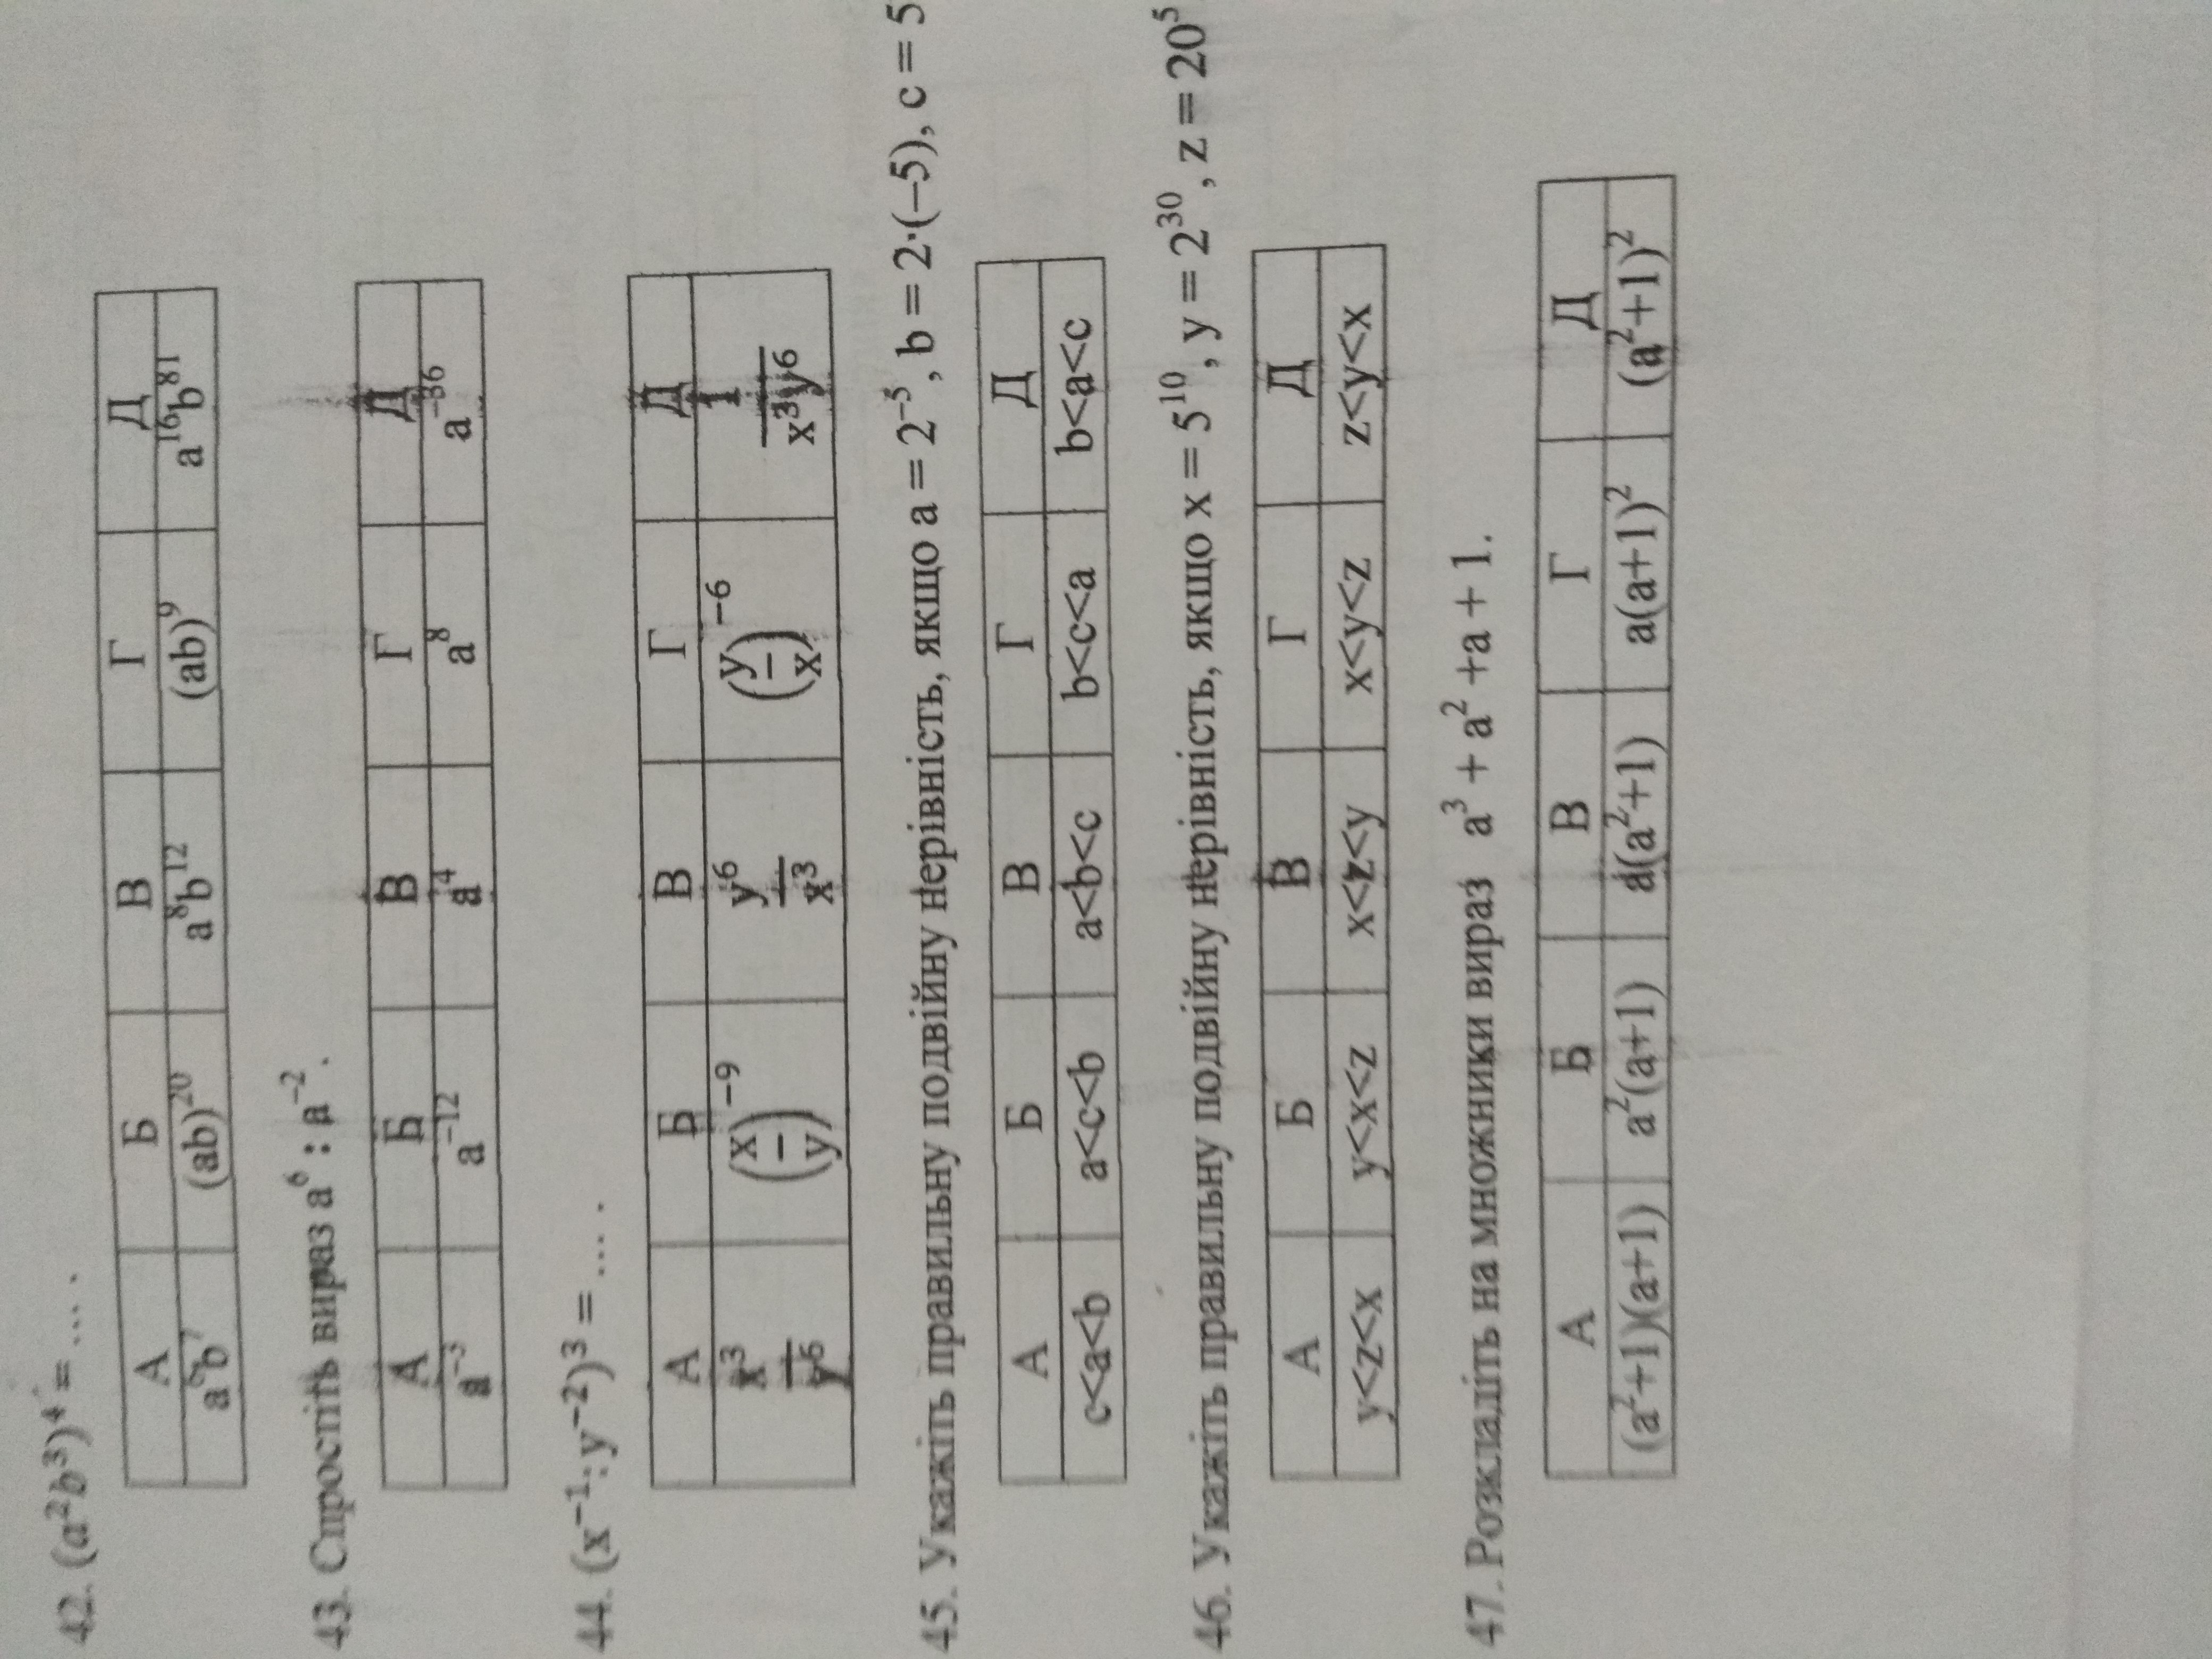 42. (a²b³)⁴ = … .
А Б В Г Д
a⁶b⁷ (ab)²⁰ a⁸b¹² (ab)⁹ a¹⁶b⁸¹
43. Спростіть вираз a⁶ : a⁻² .
А Б В Г Д
a⁻³ a⁻¹² a⁴ a⁸ a⁻³⁶
44. (x⁻¹:y⁻²)³ = … .
А Б В Г Д
x³/y⁶ (x/y)⁻⁹ y⁶/x³ (y/x)⁻⁶ 1/x³y⁶
45. Укажіть правильну подвійну нерівність, якщо a = 2⁻⁵, b = 2·(−5), c = 5
А Б В Г Д
c<a<b a<c<b a<b<c b<c<a b<a<c
46. Укажіть правильну подвійну нерівність, якщо x = 5¹⁰, y = 2³⁰, z = 20⁵
А Б В Г Д
y<z<x y<x<z x<z<y x<y<z z<y<x
47. Розкладіть на множники вираз a³ + a² +a + 1.
А Б В Г Д
(a²+1)(a+1) a²(a+1) a(a²+1) a(a+1)² (a²+1)²